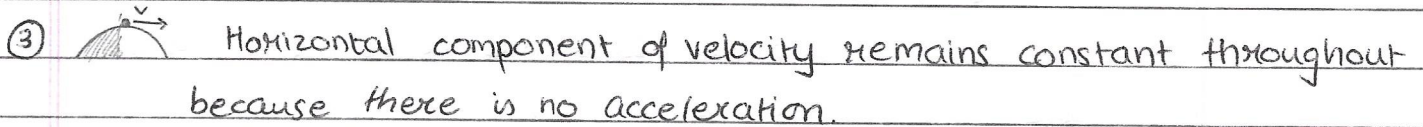 ③ v Horizontal component of velocity remains constant throughout
because there is no acceleration.